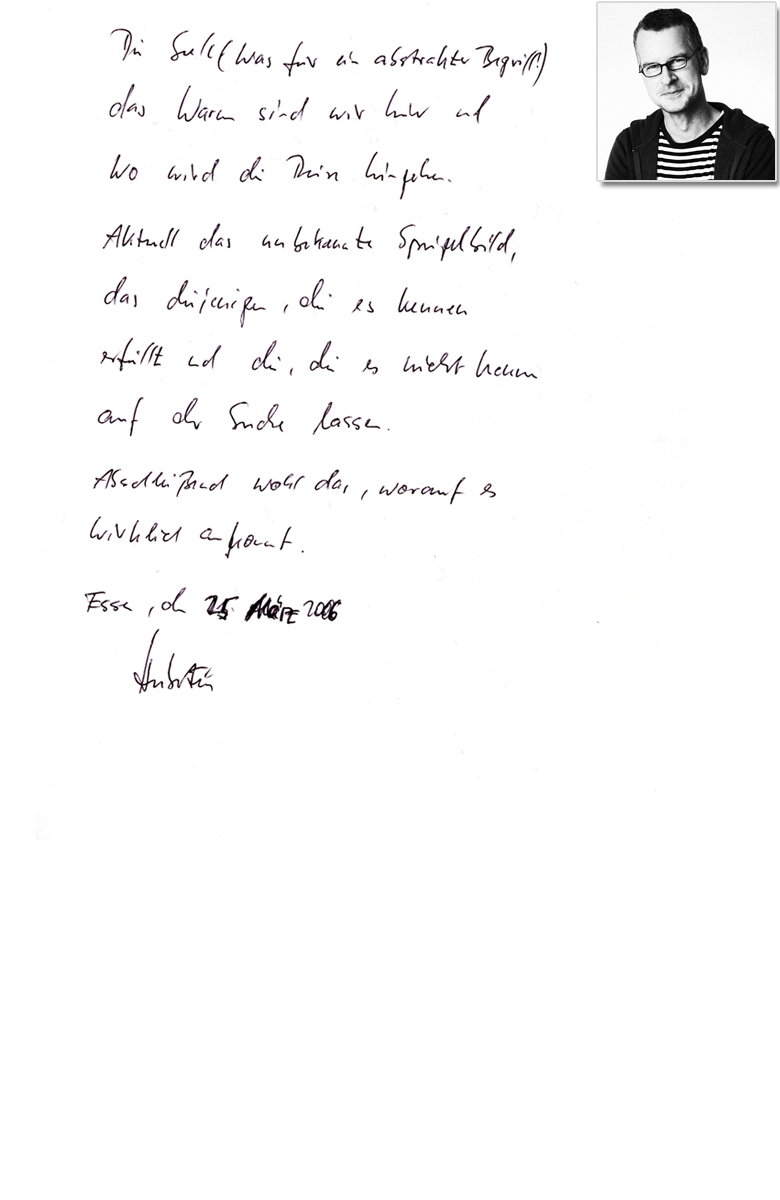 Die Seele (was für ein abstrakter Begriff!)
das Warum sind wir hier und
wo wird die Reise hingehen.
Aktuell das unbekannte Spiegelbild,
das diejenigen, die es kennen
erfüllt und die, die es nicht kennen
auf der Suche lassen.
Abschließend wohl das, worauf es
wirklich ankommt.
Essen, den 25. März 2006